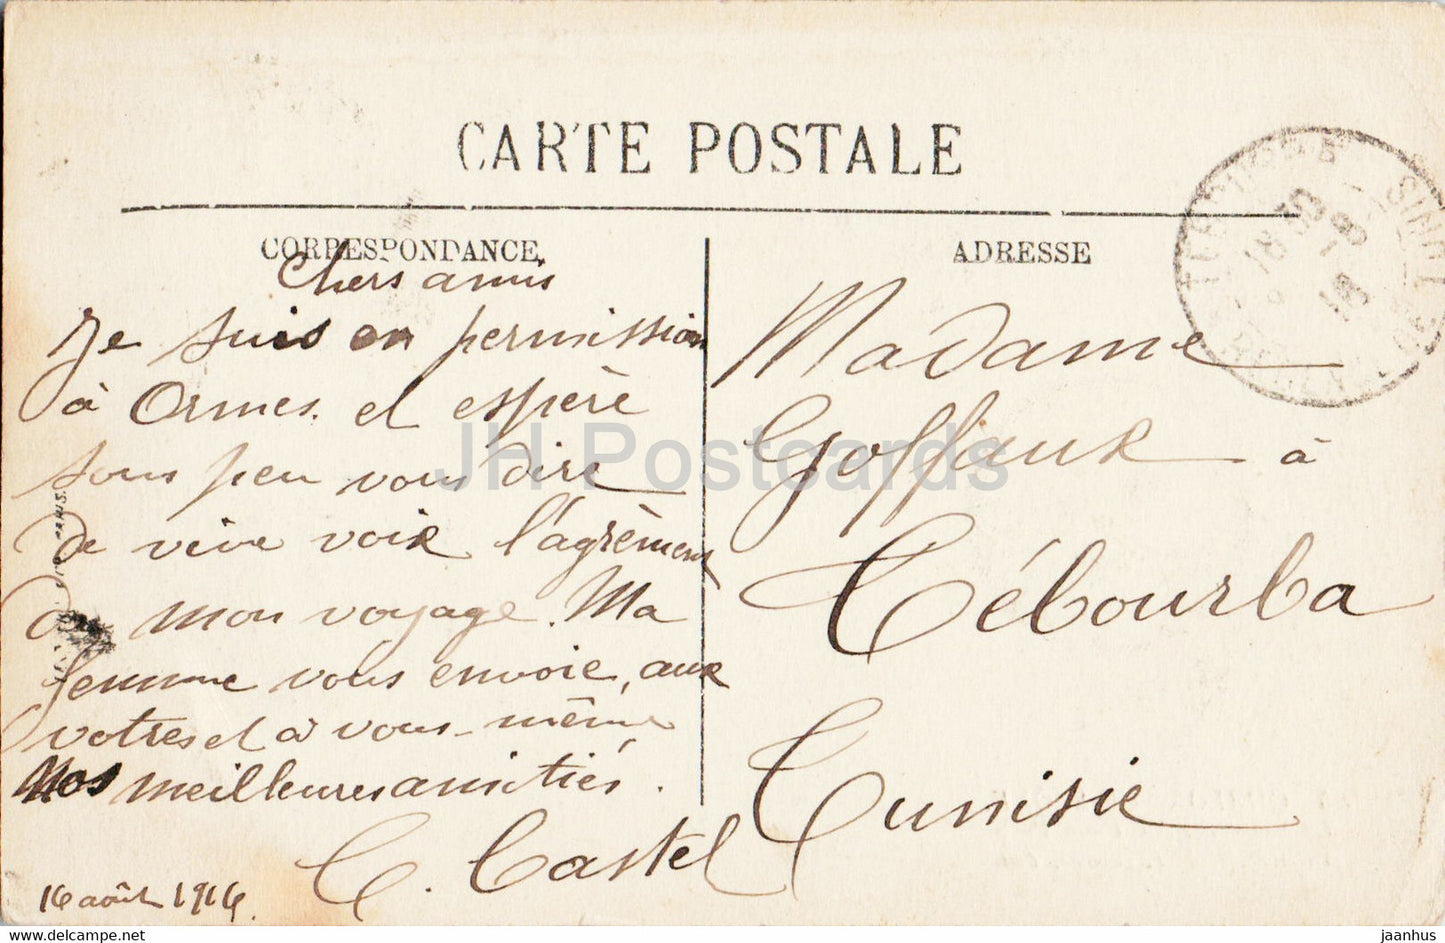 CARTE POSTALE
CORRESPONDANCE
Chers amis
Je suis en permission
à Ormes. et espère
sous peu vous dire
de vive voix l'agrèment
de mon voyage. Ma
femme vous envoie, aux
votres et à vous-même
Nos meilleures amitiés.
C. Castel
16 août 1916.
ADRESSE
Madame
Goffaux à
Tébourba
Tunisie
18 30
JH Postcards
www.delcampe.net
jaanhus